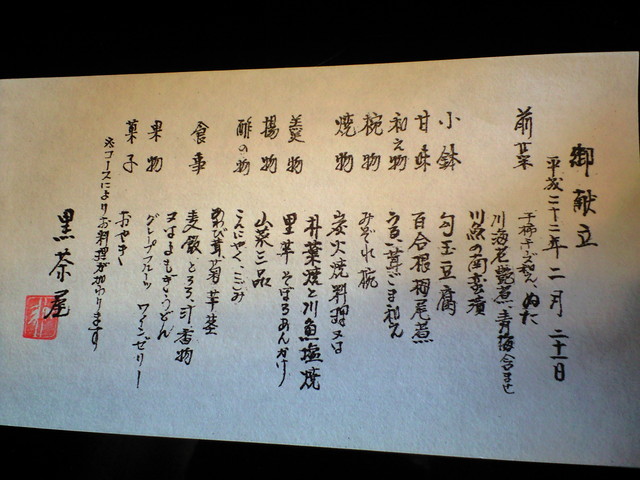 御献立
平成二十二年 二月 二十一日
前菜 干柿チーズ和え、ぬた
川海老艶煮、青梅含ませ
川魚の南蛮漬
小鉢 勾玉豆腐
甘味 百合根 煮
和え物 うど ごま和え
椀物 みぞれ椀
焼物 炭火焼料理 又は
朴葉焼と川魚塩焼
羹物 里芋そぼろあんかけ
揚物 山菜三品
酢の物 こんにゃく、こごみ
わらび 菊 芋茎
食事 麦飯 とろろ 汁・香物
又はよもぎうどん
果物 グレープフルーツ ワインゼリー
菓子 おやき
※コースによりお料理が加わります
黒茶屋